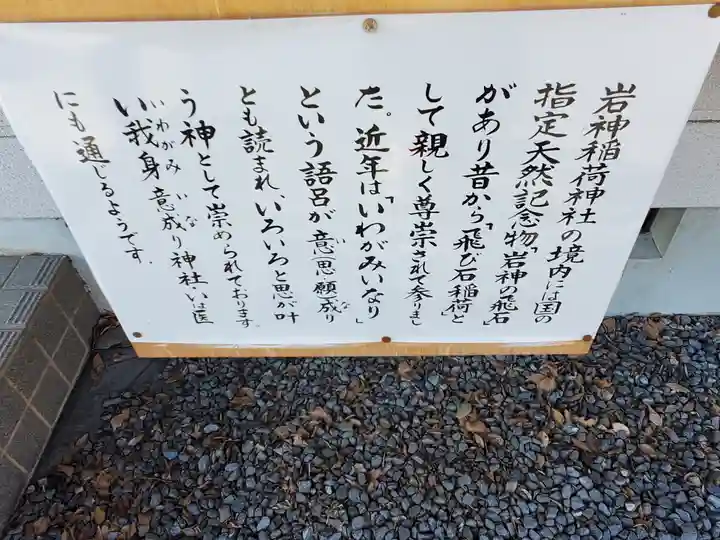 岩神稲荷神社の境内には国の
指定天然記念物「岩神の飛石」
があり昔から「飛び石稲荷」と
して親しく尊崇されて参りまし
た。近年は「いわがみいなり」
という語呂が意(思・願)成り
とも読まれ、いろいろと思が叶
う神として崇められております。
い我身意成り神社いは医
にも通じるようです。